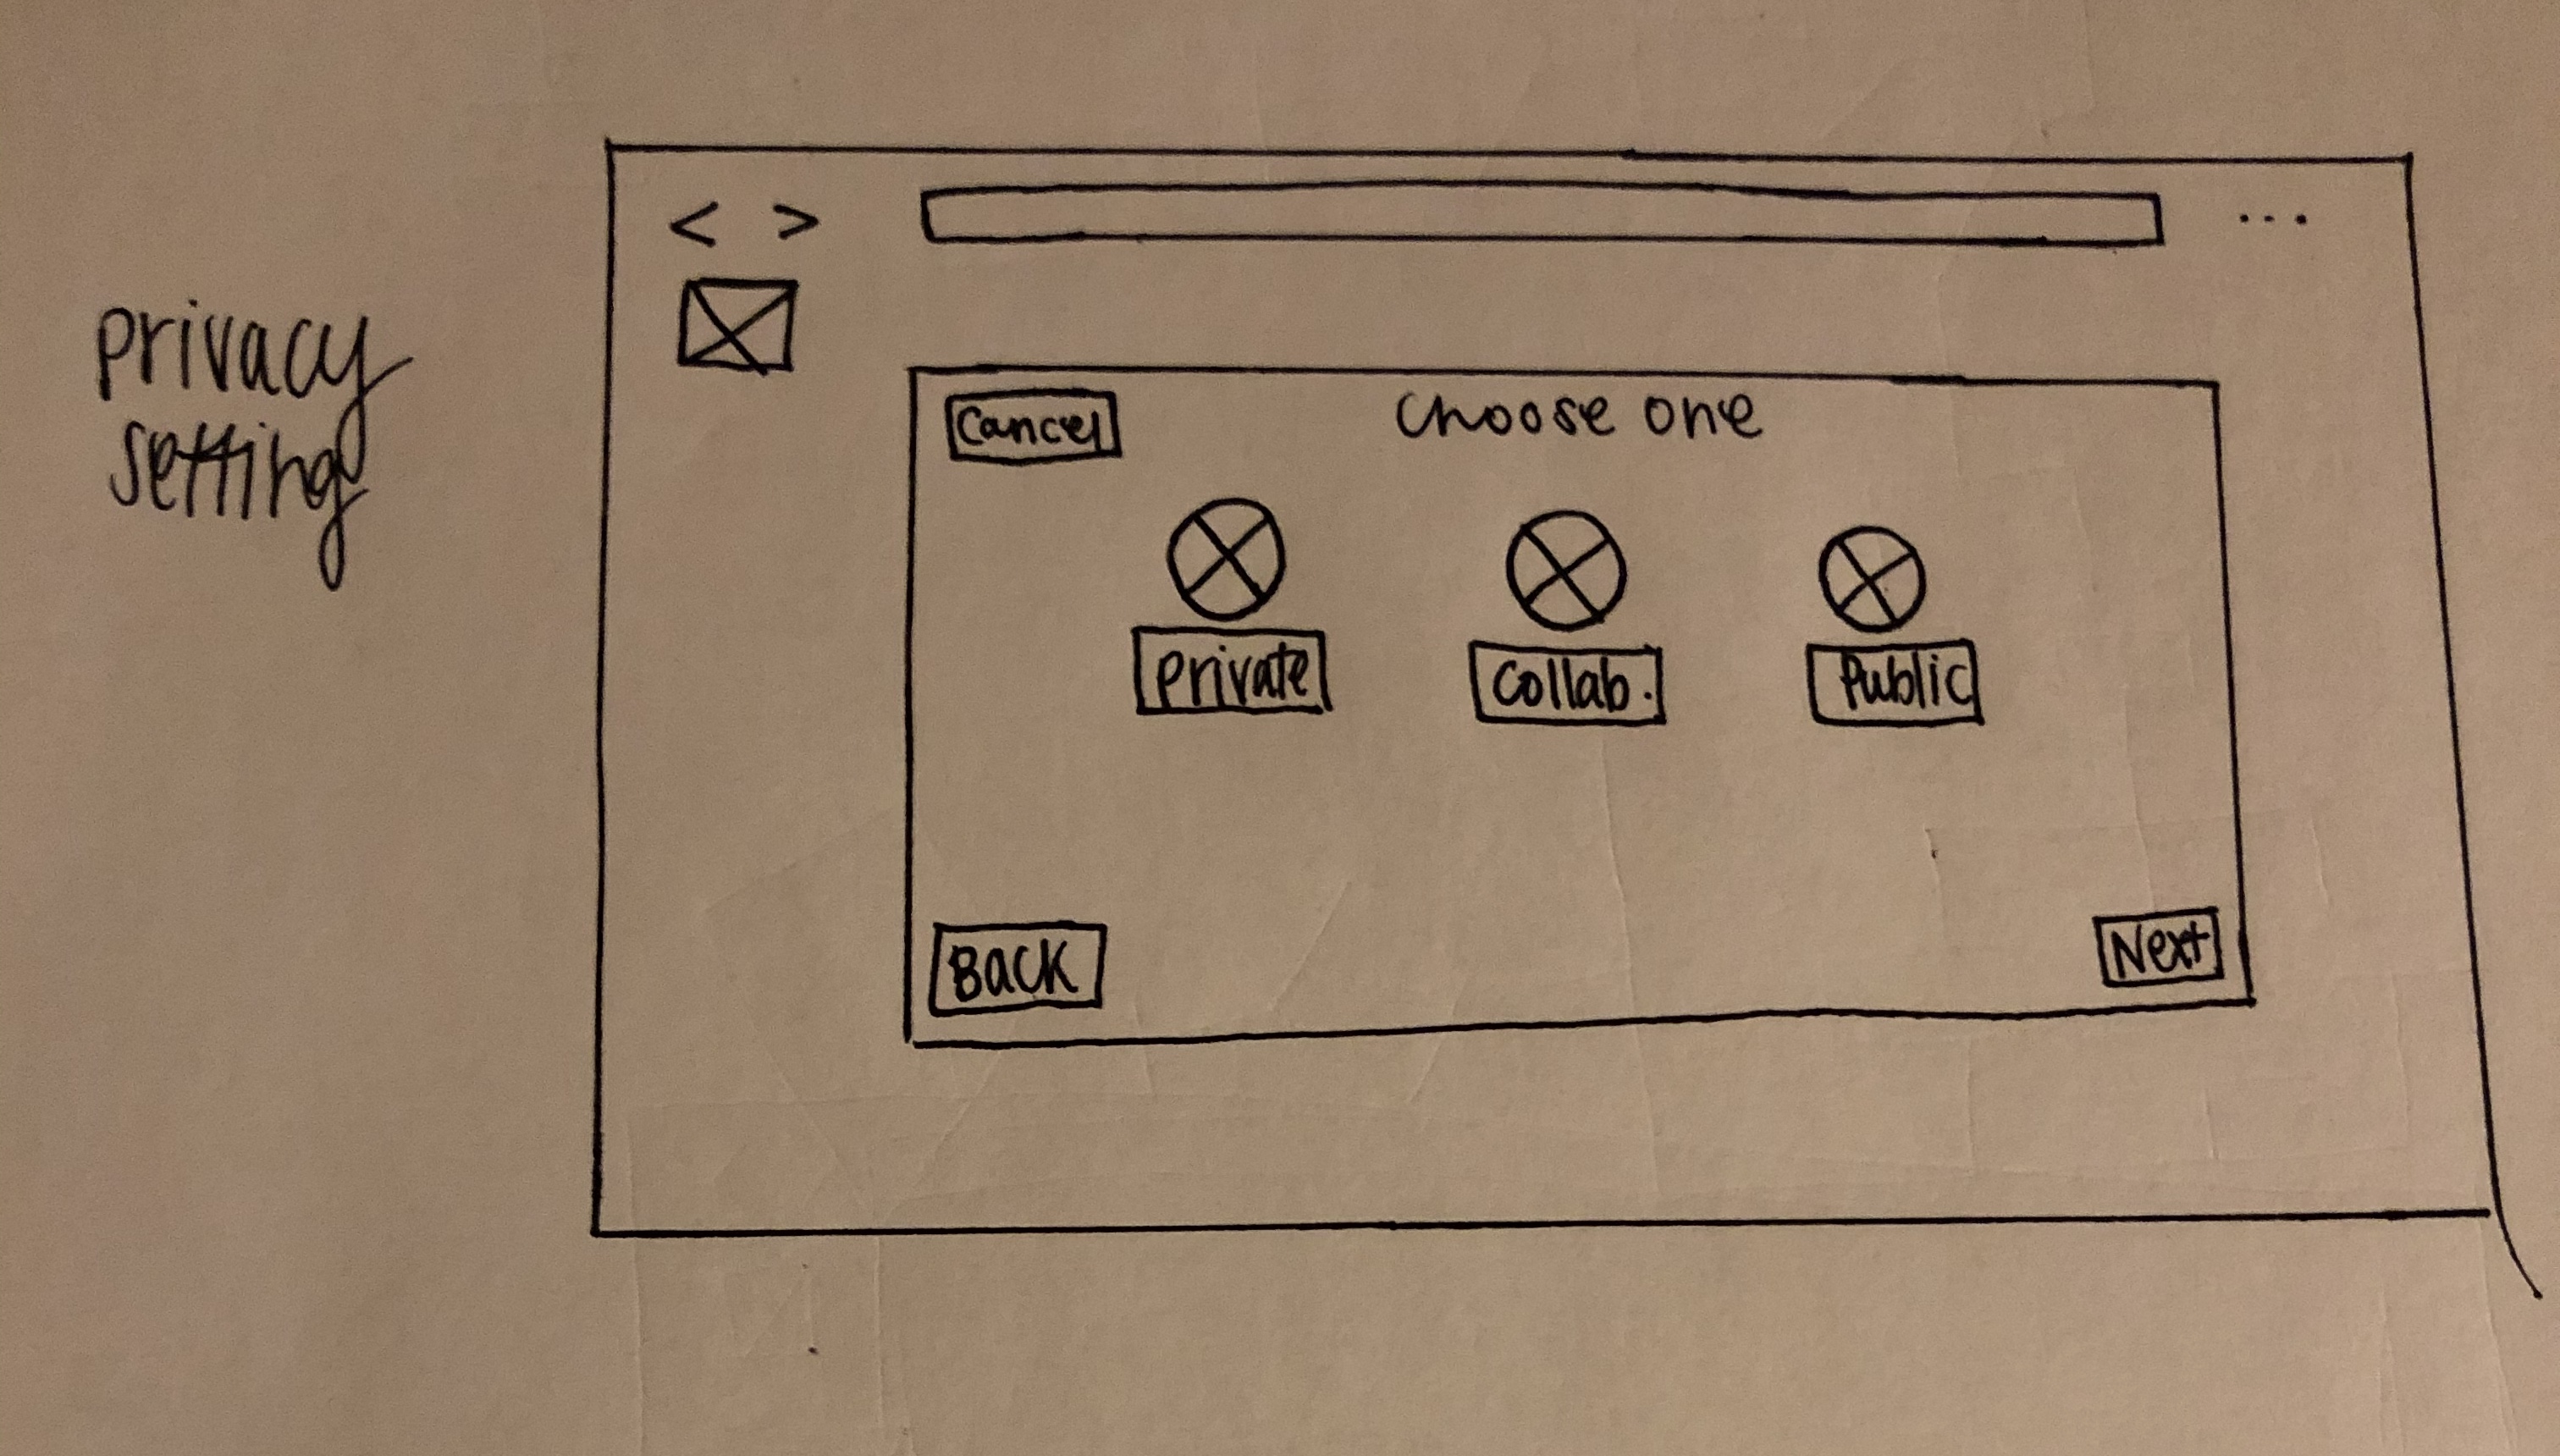 privacy
setting
< >
...
Cancel
Choose one
Private
Collab.
Public
Back
Next